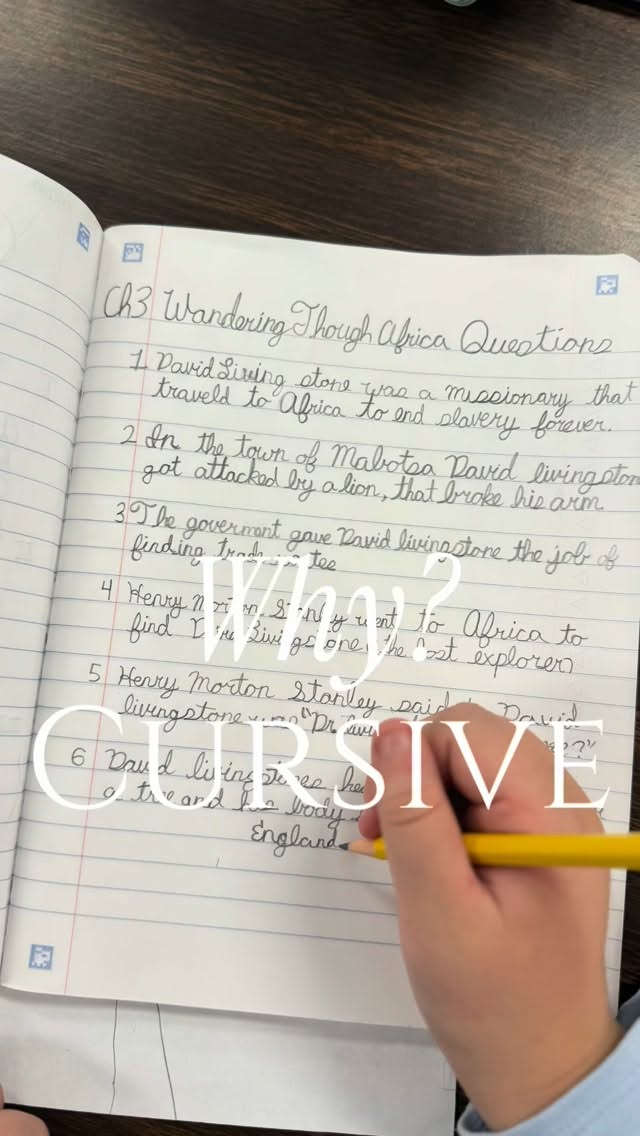 Ch3 Wandering Though Africa Questions
1 David Living stone was a missionary that
traveld to Africa to end slavery forever.
2 In the town of Mabotsa David livingston
got attacked by a lion, that broke his arm.
3 The goverment gave David livingstone the job of
finding trade
4 Henry Morton Stanley went to Africa to
find David Livingstone the lost explorer
Why?
5 Henry Morton Stanley said to David
livingstone "Dr. ?"
CURSIVE
6 David livingstones
a tree and his body
England